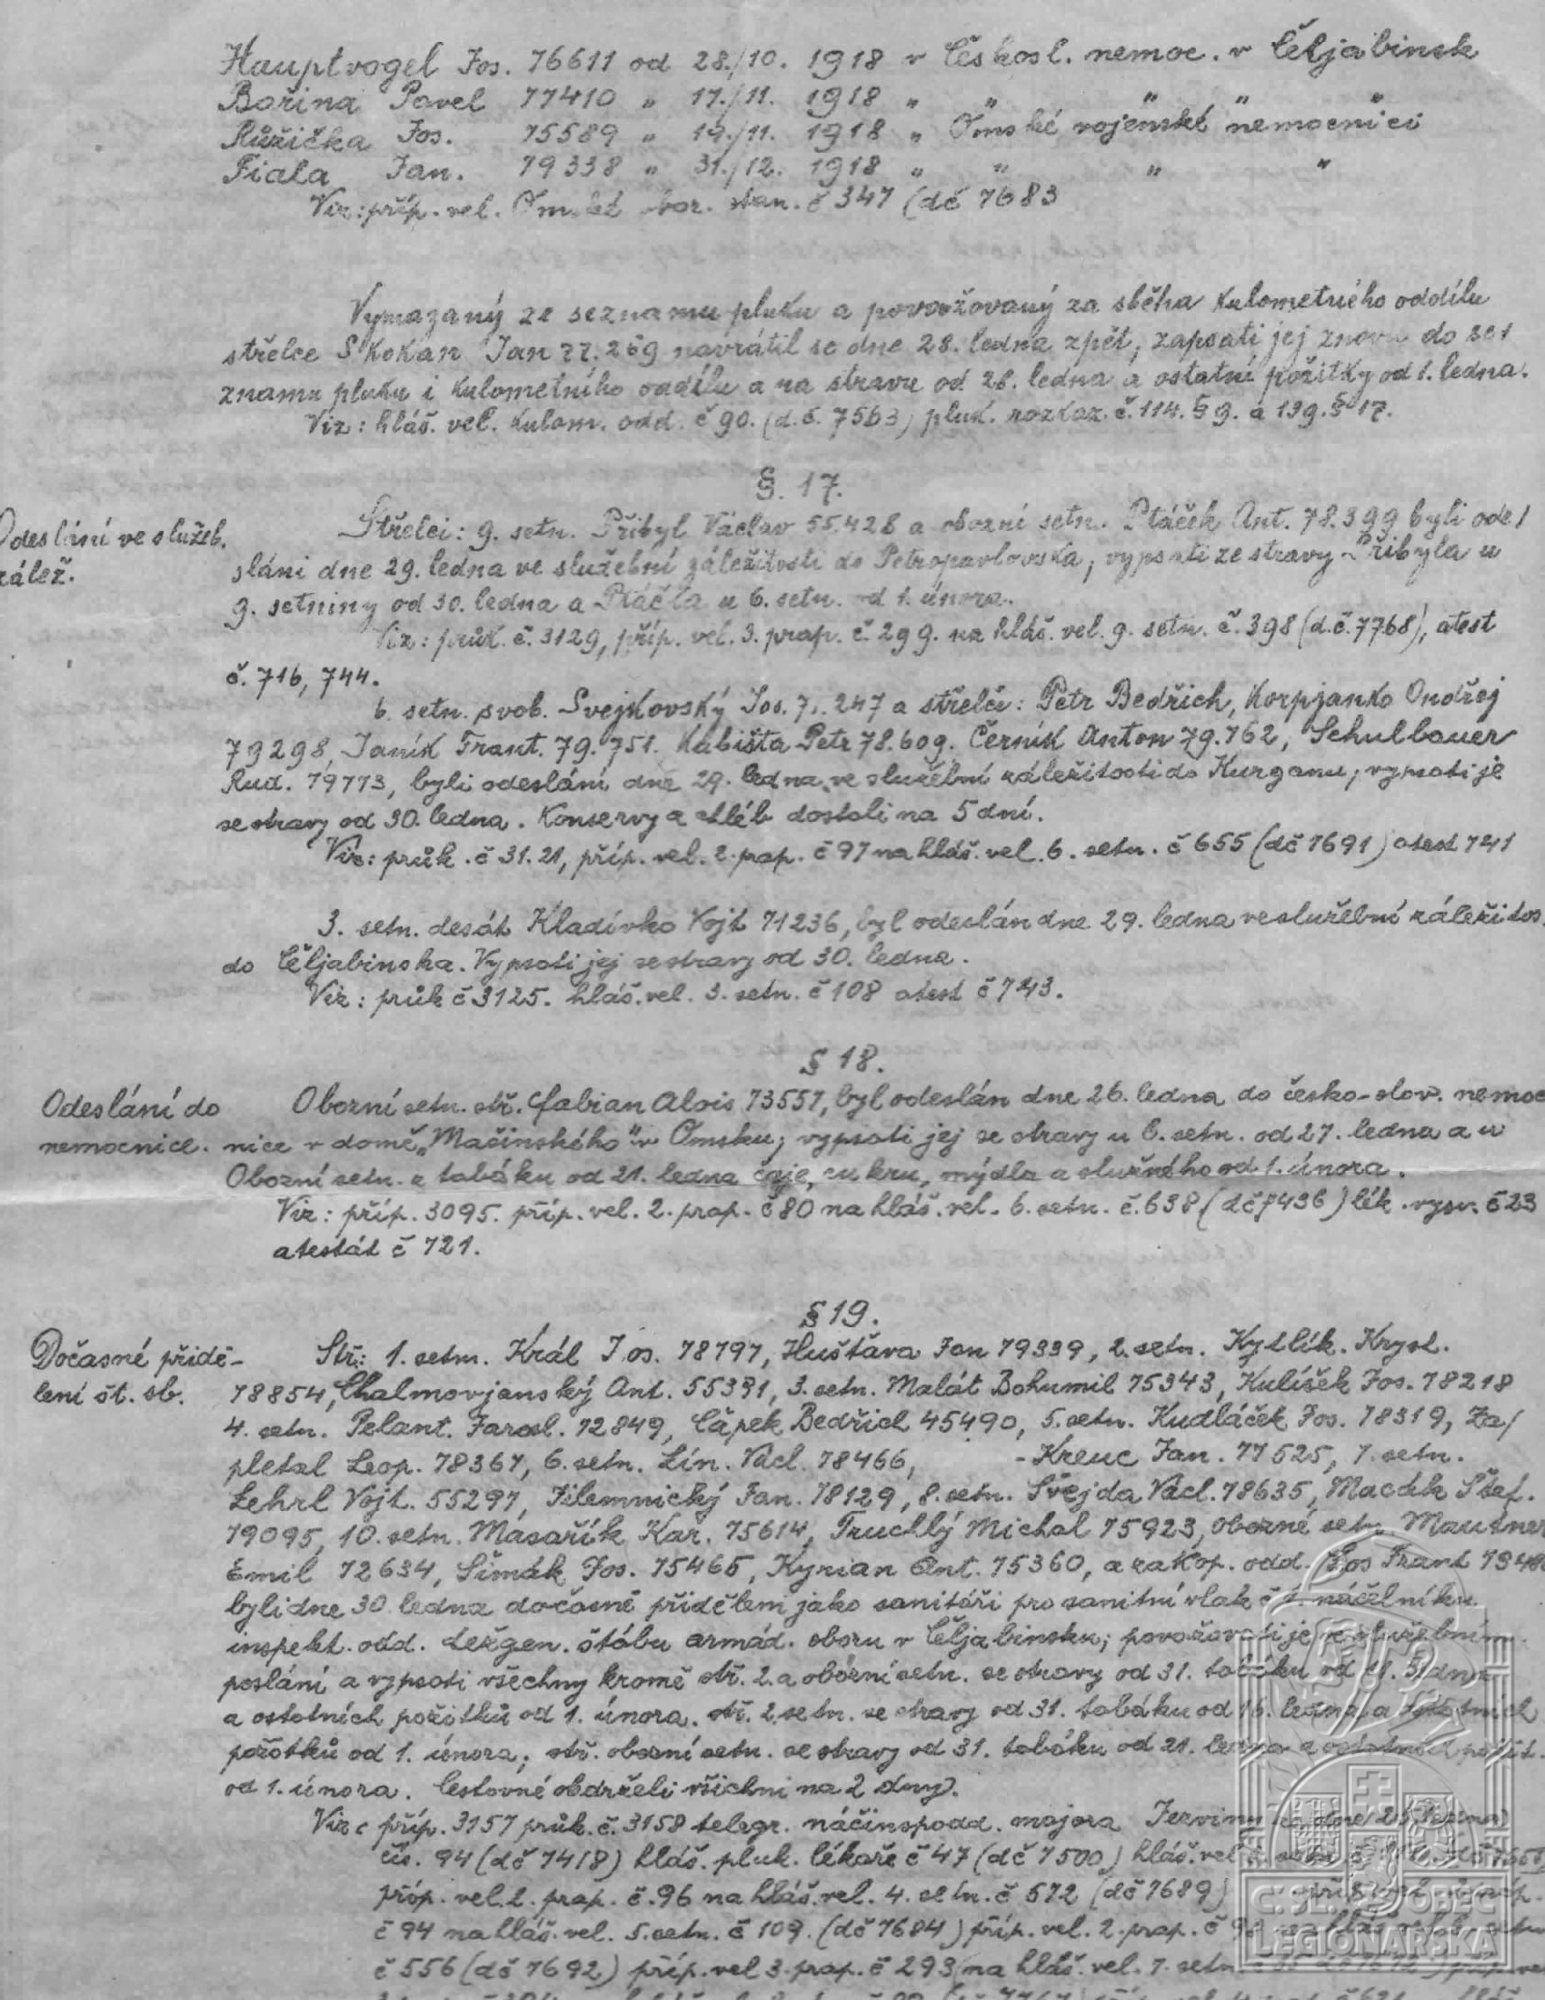 Hauptvogel Jos. 76611 od 28./10. 1918 v Českosl. nemoc. v Čeljabinsk
Bořina Pavel 77410 „ 17./11. 1918 „ „ „ „ „
Růžička Jos. 75589 „ 19./11. 1918 „ Omské vojenské nemocnici
Fiala Jan. 79338 „ 31./12. 1918 „ „ „ „
Viz: příp. vel. Omské stan. č 347 (dč 7683
Vymazaný ze seznamu pluku a považovaný za sběha kulometného oddílu
střelec Skokan Jan 77.269 navrátil se dne 28. ledna zpět, zapsati jej znovu do se/
znamu pluku i kulometního oddílu a na stravu od 28. ledna a ostatní požitky od 1. ledna.
Viz: hláš. vel. kulom. odd. č 90. (d.č. 7563) pluk. rozkaz. č. 114. § 9. a 139. § 17.
§. 17.
Odeslání ve služeb.
zálež.
Střelci: 9. setn. Přibyl Václav 55.428 a obozní setn. Ptáček Ant. 78.399 byli ode/
sláni dne 29. ledna ve služební záležitosti do Petropavlovska, vypsati ze stravy Přibyla u
9. setniny od 30. ledna a Ptáčka u 6. setn. od 1. února.
Viz: průk. č. 3129, příp. vel. 3. prap. č. 299. na hláš. vel. 9. setn. č. 398 (d.č. 7768), atest
č. 716, 744.
6. setn. svob. Svejkovský Jos. 247 a střelci: Petr Bedřich, Korpjanko Ondřej
79298, Janík Frant. 79.751. Kubišta Petr 78.609. Černík Anton 79.762, Schulbauer
Rud. 79773, byli odesláni dne 29. ledna ve služební záležitosti do Kurganu, vypsati je
se stravy od 30. ledna. Konservy a chléb dostali na 5 dní.
Viz: průk. č 31.21, příp. vel. 2. prap. č 97 na hláš. vel. 6. setn. č 655 (dč 7691) atest 741
3. setn. desát Kladívko Vojt 71236, byl odeslán dne 29. ledna ve služební záležitos.
do Čeljabinska. Vypsati jej se stravy od 30. ledna.
Viz: průk č 3125. hláš. vel. 3. setn. č 108 atest č 743.
§ 18.
Odeslání do
nemocnice.
Obozní setn. stř. Fabian Alois 73557, byl odeslán dne 26. ledna do česko-slov. nemoc
nice v domě „Mačinského" v Omsku, vypsati jej se stravy u 6. setn. od 27. ledna a u
Obozní setn. z tabáku od 21. ledna čaje, cukru, mýdla a služného od 1. února.
Viz: příp. 3095. příp. vel. 2. prap. č 80 na hláš. vel. 6. setn. č. 638 (dč 7436) lék. vysv. č 23
atestát č 721.
§ 19.
Dočasné přidě-
lení št. sb.
Stř: 1. setn. Král Jos. 78797, Huštáva Jan 79339, 2. setn. Kytlík. Kryst.
78854, Chalmovjanský Ant. 55391, 3. setn. Malát Bohumil 75343, Kulíšek Jos. 78218
4. setn. Pelant. Jarosl. 72849, Čápek Bedřich 45490, 5. setn. Kudláček Jos. 78319, Za/
pletal Leop. 78367, 6. setn. Lín. Václ. 78466, - Kreuc Jan. 77525, 7. setn.
Lehrl Vojt. 55297, Jilemnický Jan. 78129, 8. setn. Švejda Václ. 78635, Macák Štef.
79095, 10. setn. Masařík Kar. 75614, Truchlý Michal 75923, obozné setn. Mautner
Emil 72634, Šimák Jos. 75465, Kyrian Ant. 75360, a zakop. odd. Los Frant
byli dne 30 ledna dočasně přiděleni jako sanitáři pro sanitní vlak č 1. náčelníku
inspekt. odd. štábu armád. sboru v Čeljabinsku; považovati je ve služebním
poslání a vypsati všechny kromě stř. 2. a obozní setn. se stravy od 31. tabáku od 11. ledna
a ostatních požitků od 1. února. stř. 2. setn. se stravy od 31. tabáku od 16. ledna a ostatních
požitků od 1. února; stř. obozní setn. se stravy od 31. tabáku od 21. ledna a ostatních požit.
od 1. února. Cestovné obdrželi všichni na 2 dny.
Viz: příp. 3157 průk. č. 3158 telegr. náčinspodd. majora dne 25. ledna
čís. 94 (dč 7418) hláš. pluk. lékaře č 47 (dč 7500) hláš. vel
příp. vel. 2. prap. č. 96 na hláš. vel. 4. setn. č 572 (dč 7689)
č 94 na hláš. vel. 5. setn. č 109. (dč 7684) příp. vel. 2. prap. č
č 556 (dč 7692) příp. vel 3. prap. č 293 na hláš. vel. 7. setn.
Č. SL. OBEC
LEGIONÁŘSKÁ